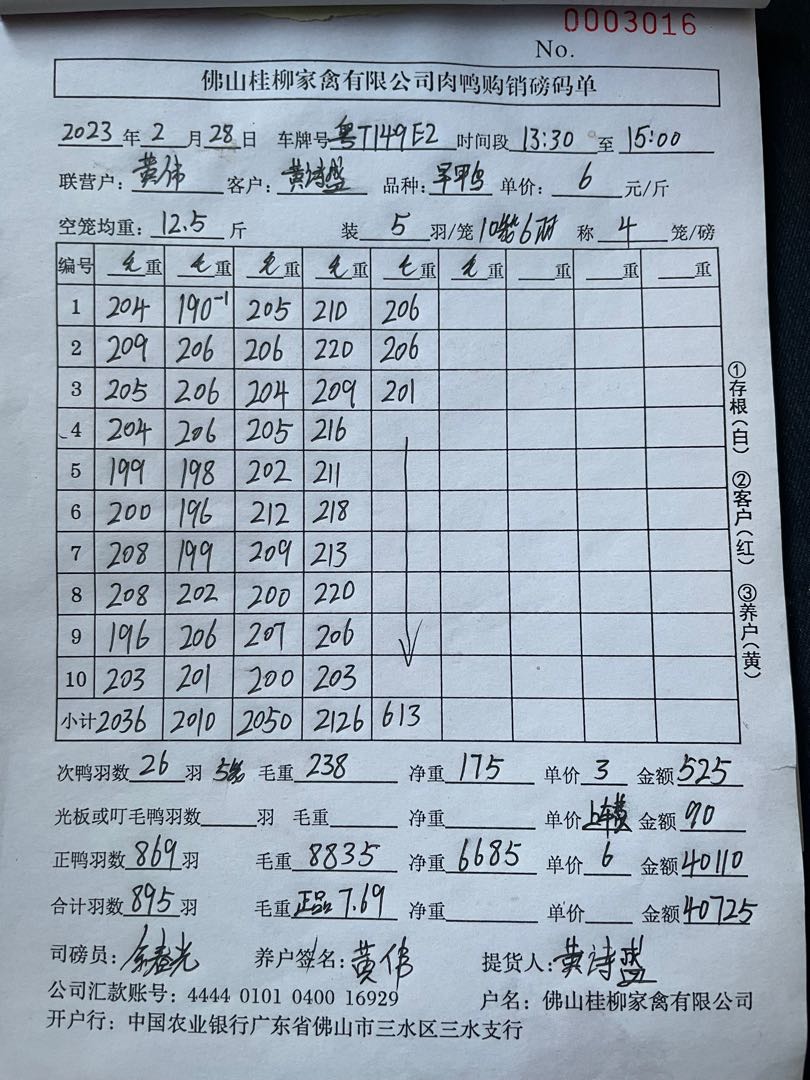 0003016
No.
佛山桂柳家禽有限公司肉鸭购销磅码单
2023年2月28日 车牌号粤T149E2 时间段13:30至15:00
联营户：黄伟 客户：黄诗盛 品种：旱鸭 单价：6元/斤
空笼均重：12.5斤 装5羽/笼10笼6羽 称4笼/磅
编号 毛重 毛重 毛重 毛重 毛重 毛重 重 重 重
1 204 190-1 205 210 206
2 209 206 206 220 206
3 205 206 204 209 201
4 204 206 205 216
5 199 198 202 211
6 200 196 212 218
7 208 199 209 213
8 208 202 200 220
9 196 206 207 206
10 203 201 200 203
小计 2036 2010 2050 2126 613
次鸭羽数26羽 5笼 毛重238 净重175 单价3 金额525
光板或叮毛鸭羽数 羽 毛重 净重 单价上车费 金额90
正鸭羽数869羽 毛重8835 净重6685 单价6 金额40110
合计羽数895羽 毛重正品7.69 净重 单价 金额40725
司磅员： 养户签名：黄伟 提货人：黄诗盛
公司汇款账号：4444 0101 0400 16929 户名：佛山桂柳家禽有限公司
开户行：中国农业银行广东省佛山市三水区三水支行
①存根（白） ②客户（红） ③养户（黄）